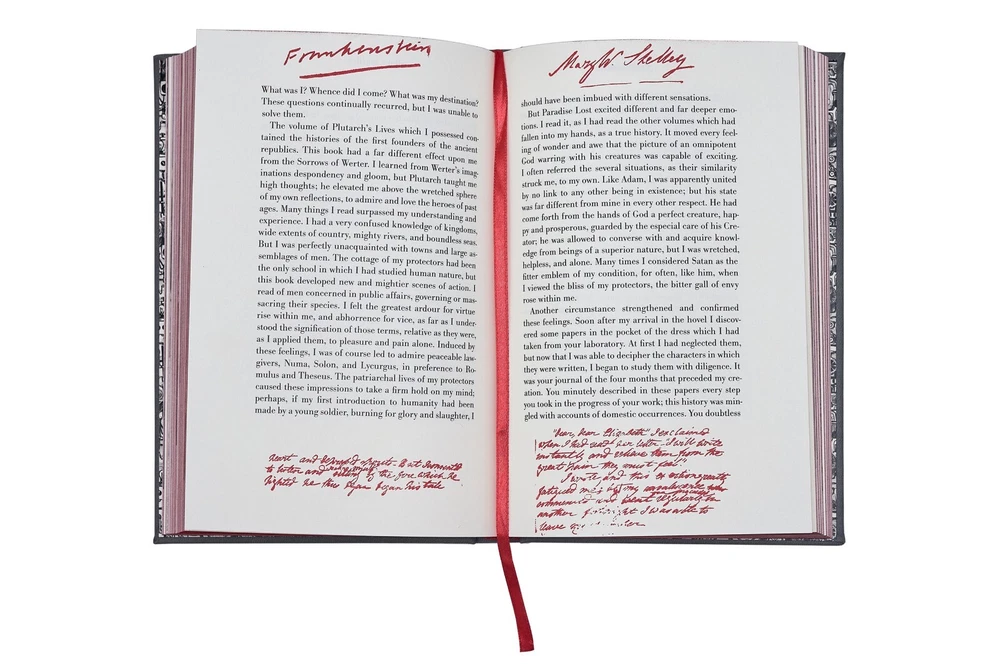 Frankenstein
What was I? Whence did I come? What was my destination?
These questions continually recurred, but I was unable to
solve them.
The volume of Plutarch's Lives which I possessed con-
tained the histories of the first founders of the ancient
republics. This book had a far different effect upon me
from the Sorrows of Werter. I learned from Werter's imag-
inations despondency and gloom, but Plutarch taught me
high thoughts; he elevated me above the wretched sphere
of my own reflections, to admire and love the heroes of past
ages. Many things I read surpassed my understanding and
experience. I had a very confused knowledge of kingdoms,
wide extents of country, mighty rivers, and boundless seas.
But I was perfectly unacquainted with towns and large as-
semblages of men. The cottage of my protectors had been
the only school in which I had studied human nature, but
this book developed new and mightier scenes of action. I
read of men concerned in public affairs, governing or mas-
sacring their species. I felt the greatest ardour for virtue
rise within me, and abhorrence for vice, as far as I under-
stood the signification of those terms, relative as they were,
as I applied them, to pleasure and pain alone. Induced by
these feelings, I was of course led to admire peaceable law-
givers, Numa, Solon, and Lycurgus, in preference to Ro-
mulus and Theseus. The patriarchal lives of my protectors
caused these impressions to take a firm hold on my mind;
perhaps, if my first introduction to humanity had been
made by a young soldier, burning for glory and slaughter, I
heart and
to listen and by the fire which he
lighted he thus began his tale
Mary W. Shelley
should have been imbued with different sensations.
But Paradise Lost excited different and far deeper emo-
tions. I read it, as I had read the other volumes which had
fallen into my hands, as a true history. It moved every feel-
ing of wonder and awe that the picture of an omnipotent
God warring with his creatures was capable of exciting.
I often referred the several situations, as their similarity
struck me, to my own. Like Adam, I was apparently united
by no link to any other being in existence; but his state
was far different from mine in every other respect. He had
come forth from the hands of God a perfect creature, hap-
py and prosperous, guarded by the especial care of his Cre-
ator; he was allowed to converse with and acquire knowl-
edge from beings of a superior nature, but I was wretched,
helpless, and alone. Many times I considered Satan as the
fitter emblem of my condition, for often, like him, when
I viewed the bliss of my protectors, the bitter gall of envy
rose within me.
Another circumstance strengthened and confirmed
these feelings. Soon after my arrival in the hovel I discov-
ered some papers in the pocket of the dress which I had
taken from your laboratory. At first I had neglected them,
but now that I was able to decipher the characters in which
they were written, I began to study them with diligence. It
was your journal of the four months that preceded my cre-
ation. You minutely described in these papers every step
you took in the progress of your work; this history was min-
gled with accounts of domestic occurrences. You doubtless
"Dear, Dear Elizabeth" I exclaimed
when I had read her letter "I will write
instantly and relieve them from the
great pain they must feel."
I wrote and this exertion greatly
fatigued me; but my convalescence had
commenced and went regularly. In
another fortnight I was able to
leave my